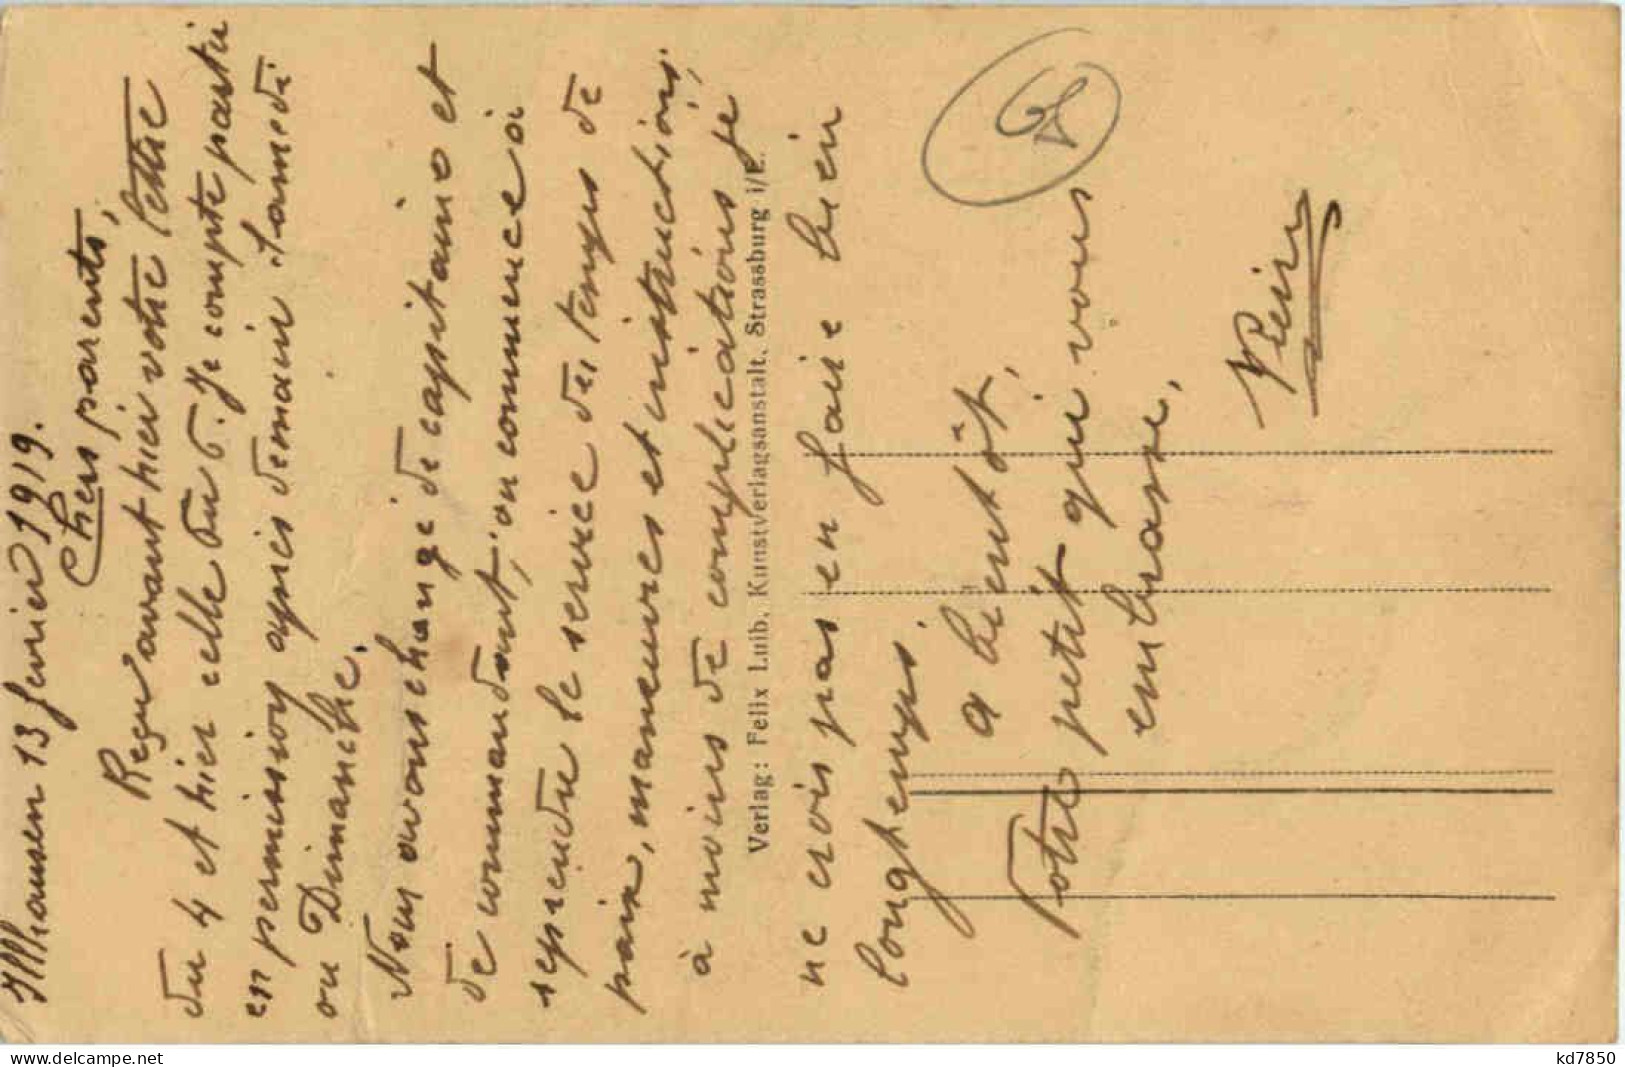 Illhausen 13 fevrier 1919.
Chers parents,
Reçu avant hier votre lettre
du 4 et hier celle du 6. Je compte partir
en permission après demain samedi
ou Dimanche.
Nous avons changé de capitaine et
de commandant, on commence à
reprendre le service du temps de
paix, manœuvres et instructions.
à moins de complications je
ne crois pas en faire bien
longtemps.
a bientôt,
Votre petit qui vous
embrasse,
Verlag: Felix Luib, Kunstverlagsanstalt, Strassburg i/E.
kd7850